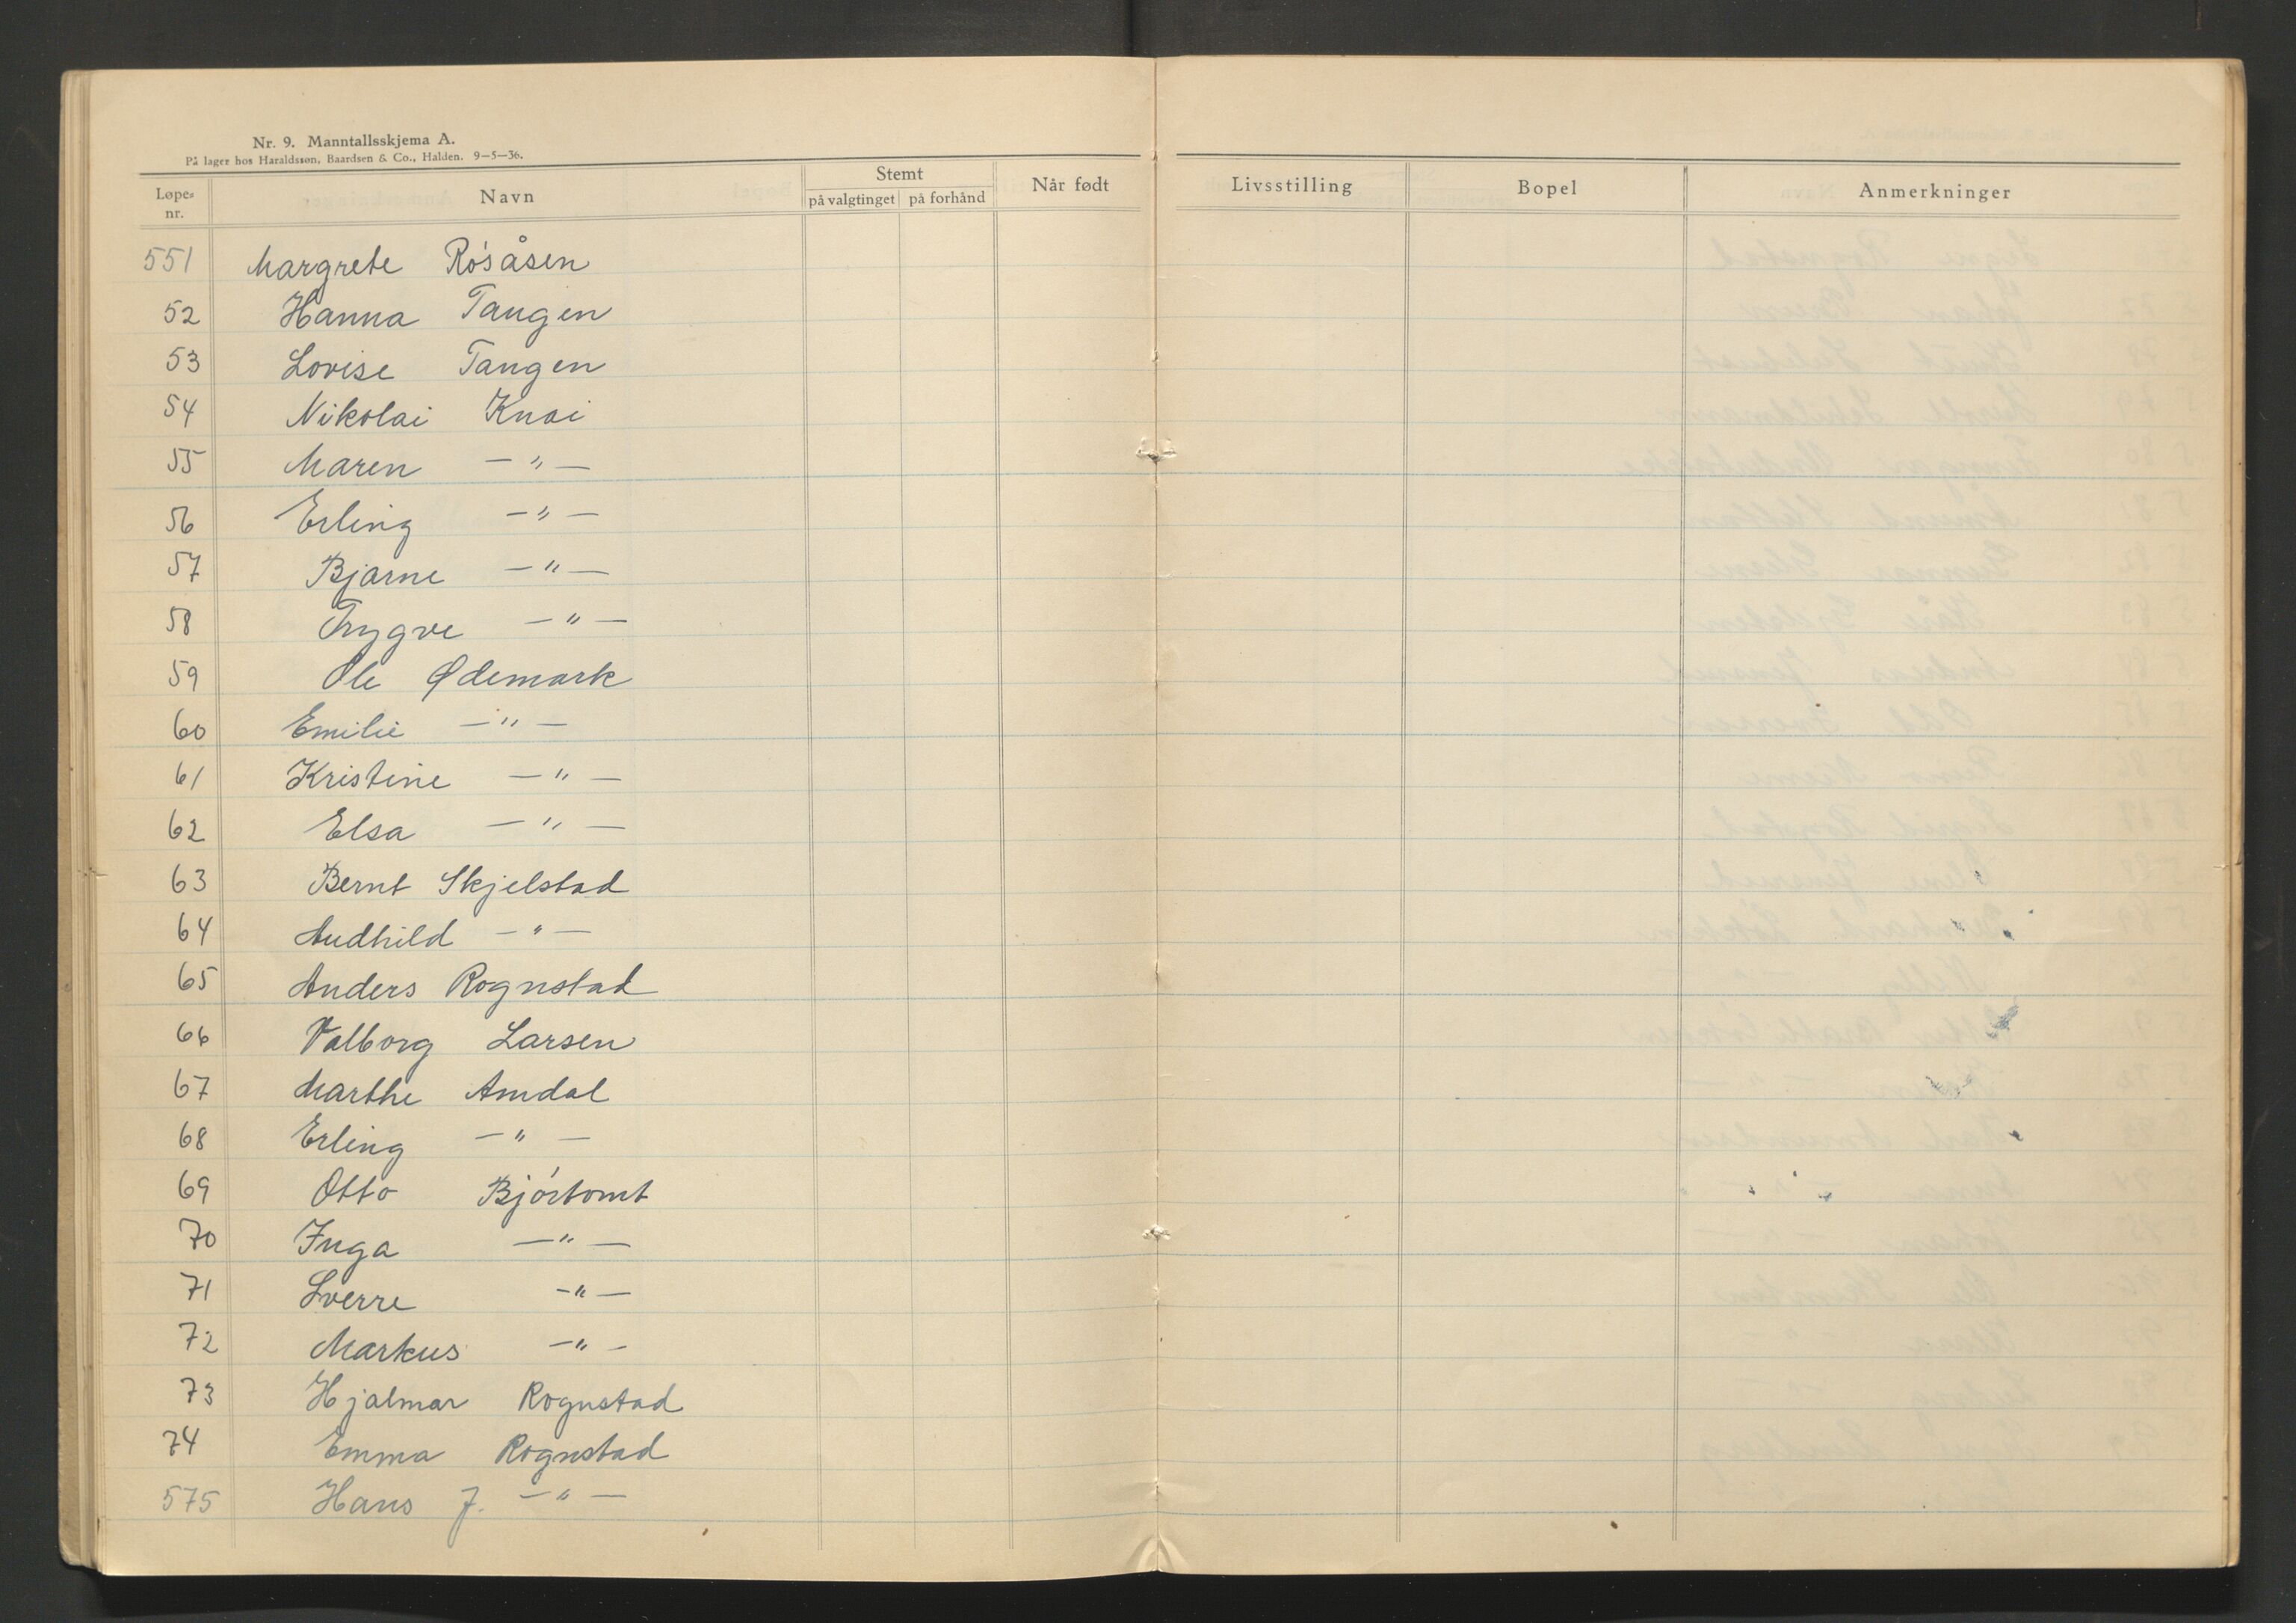 Nr. 9. Manntallsskjema A.
På lager hos Haraldssøn, Baardsen & Co., Halden. 9–5–36.
Løpe-nr. Navn Stemt på valgtinget på forhånd Når født Livsstilling Bopel Anmerkninger
551 Margrete Røsåsen
52 Hanna Tangen
53 Lovise Tangen
54 Nikolai Knai
55 Maren — " —
56 Erling — " —
57 Bjarne — " —
58 Trygve — " —
59 Ole Ødemark
60 Emilie — " —
61 Kristine — " —
62 Elsa — " —
63 Bernt Skjelstad
64 Audhild — " —
65 Anders Rognstad
66 Valborg Larsen
67 Marthe Amdal
68 Erling — " —
69 Otto Bjørtomt
70 Inga — " —
71 Sverre — " —
72 Markus — " —
73 Hjalmar Rognstad
74 Emma Rognstad
575 Hans J. — " —